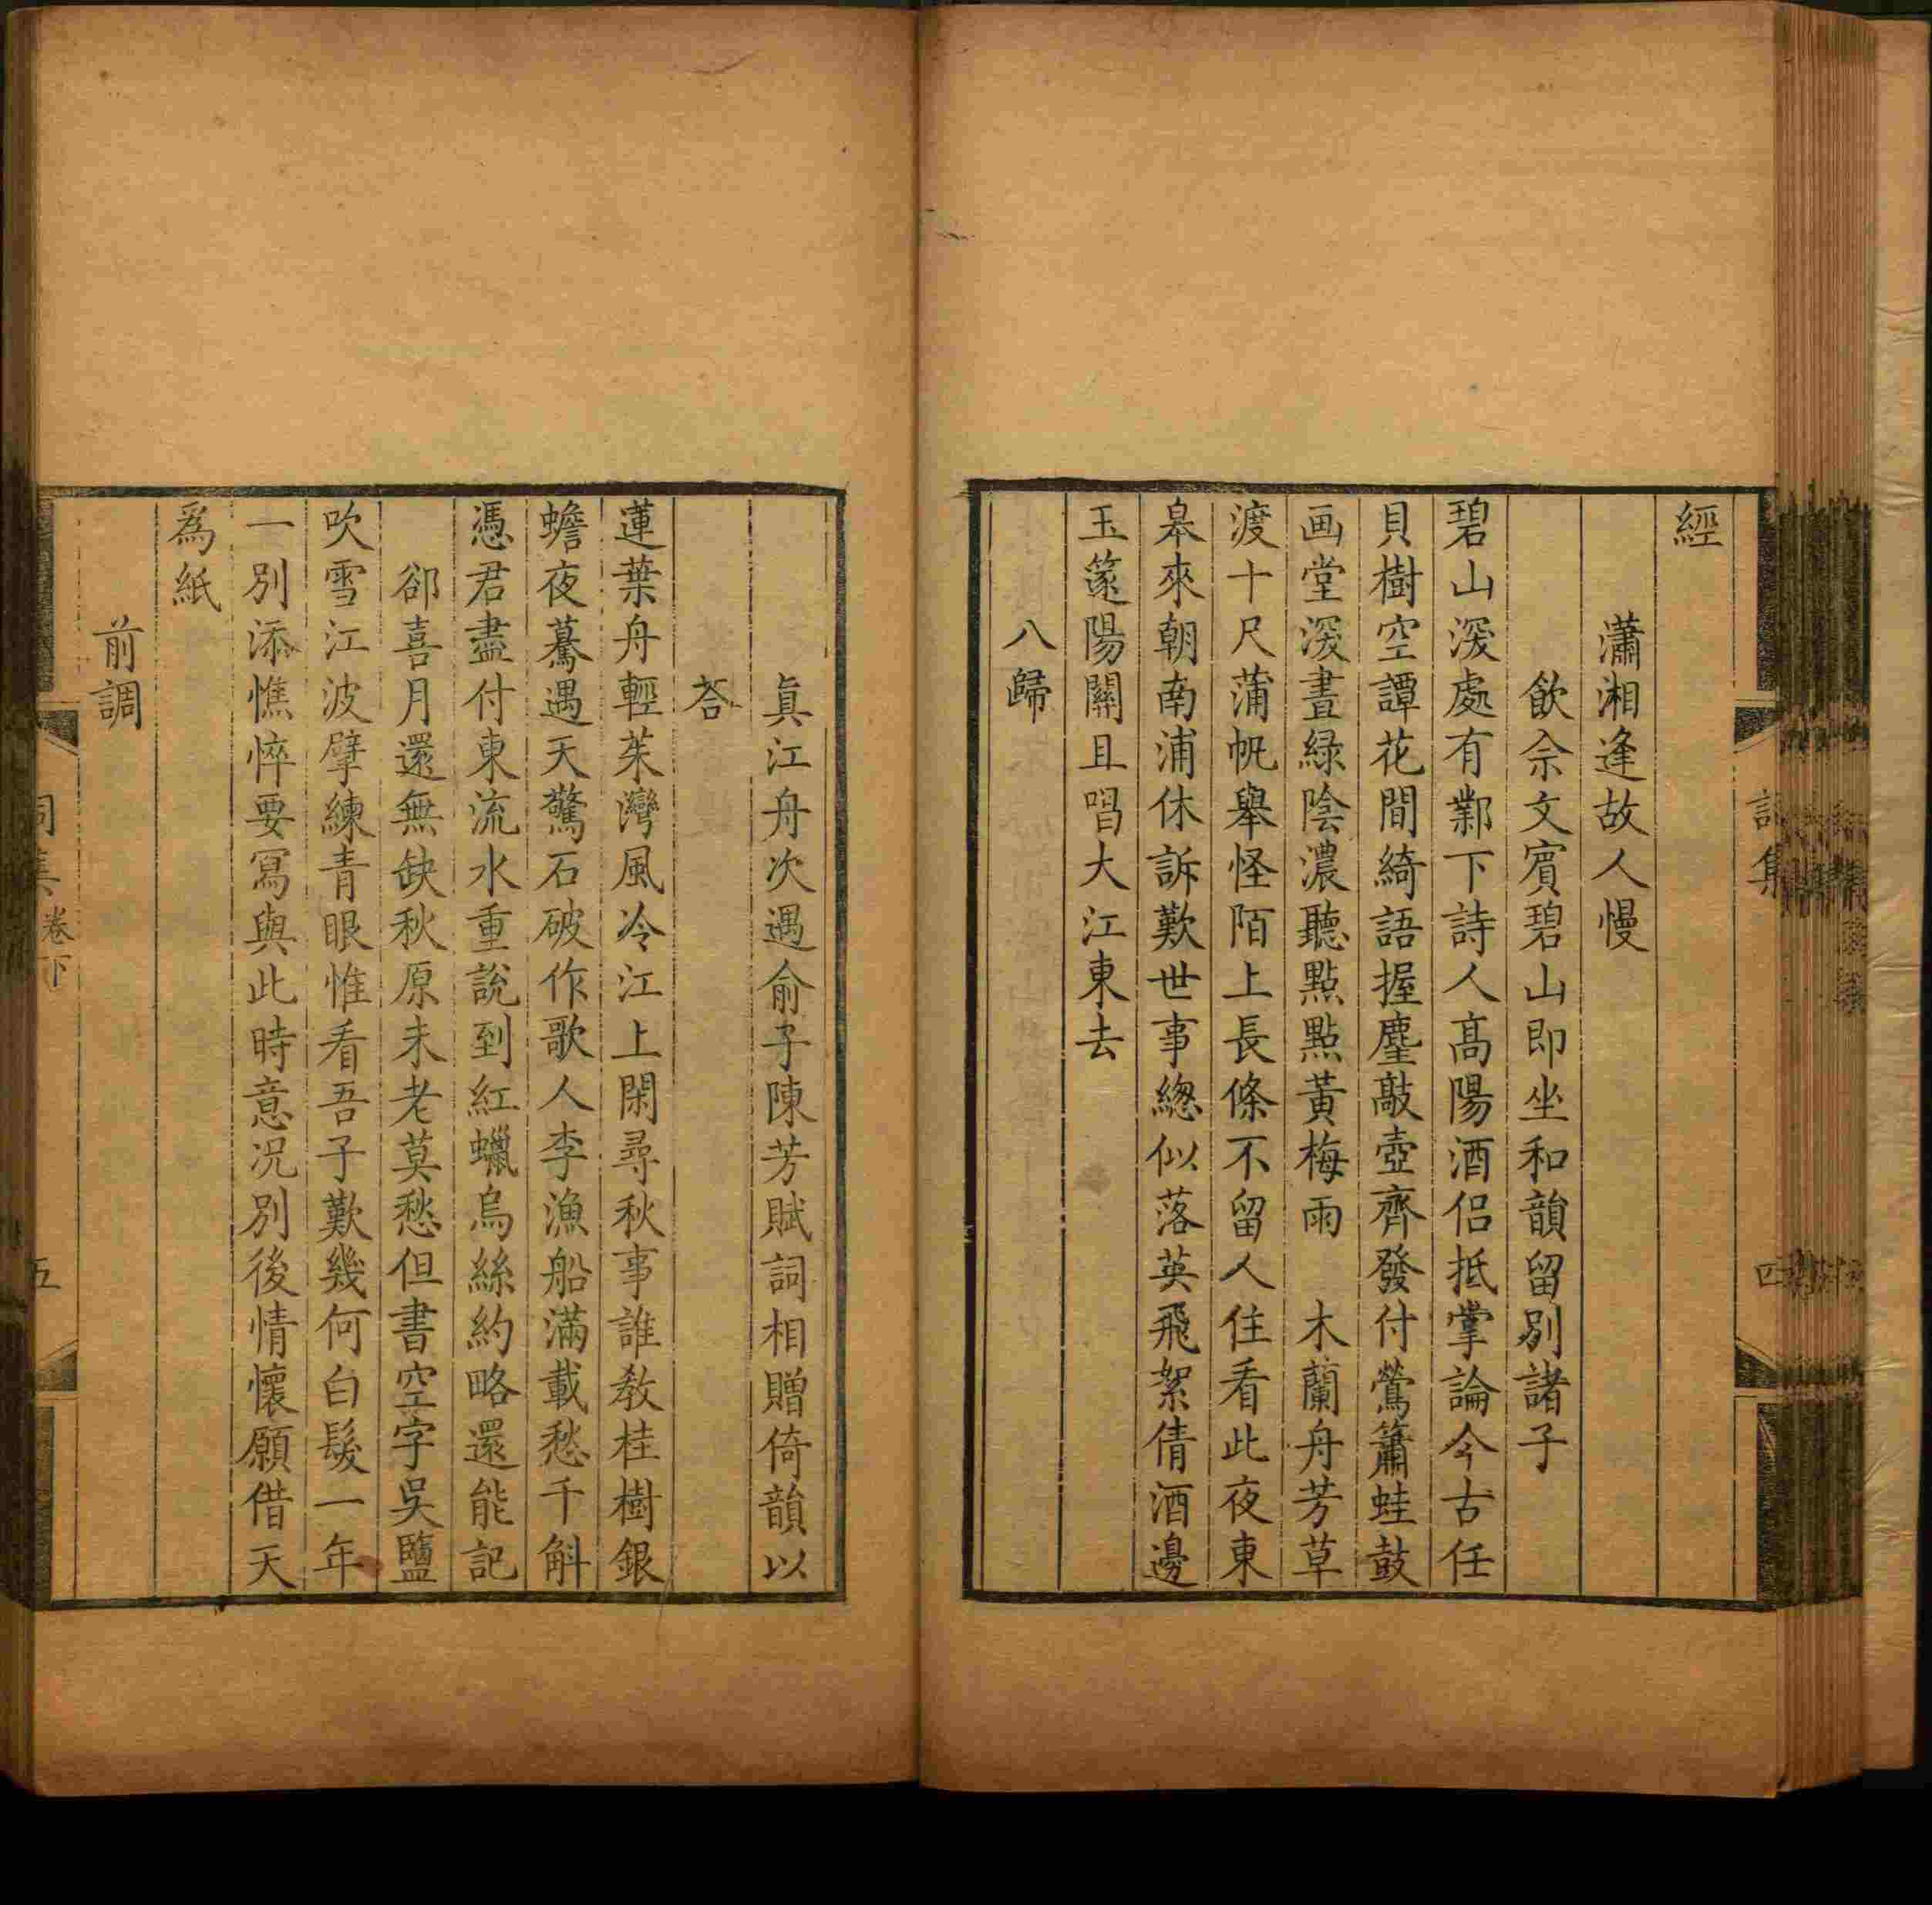 經
瀟湘逢故人慢
飲佘文賓碧山即坐和韻留別諸子
碧山深處有鄴下詩人高陽酒侶抵掌論今古任
貝樹空譚花間綺語握麈敲壺齊發付鶯簫蛙鼓
画堂深晝綠陰濃聽點點黃梅雨　木蘭舟芳草
渡十尺蒲帆舉怪陌上長條不留人住看此夜東
皋來朝南浦休訴歎世事總似落英飛絮倩酒邊
玉篴陽關且唱大江東去
八歸
真江舟次遇俞子陳芳賦詞相贈倚韻以
荅
蓮葉舟輕茱灣風冷江上閑尋秋事誰教桂樹銀
蟾夜驀遇天驚石破作歌人李漁船滿載愁千斛
憑君盡付東流水重說到紅蠟烏絲約略還能記
　卻喜月還無缺秋原未老莫愁但書空字吳鹽
吹雪江波擘練青眼惟看吾子歎幾何白髮一年
一別添憔悴要寫與此時意況別後情懷願借天
爲紙
前調
詞集卷下
五